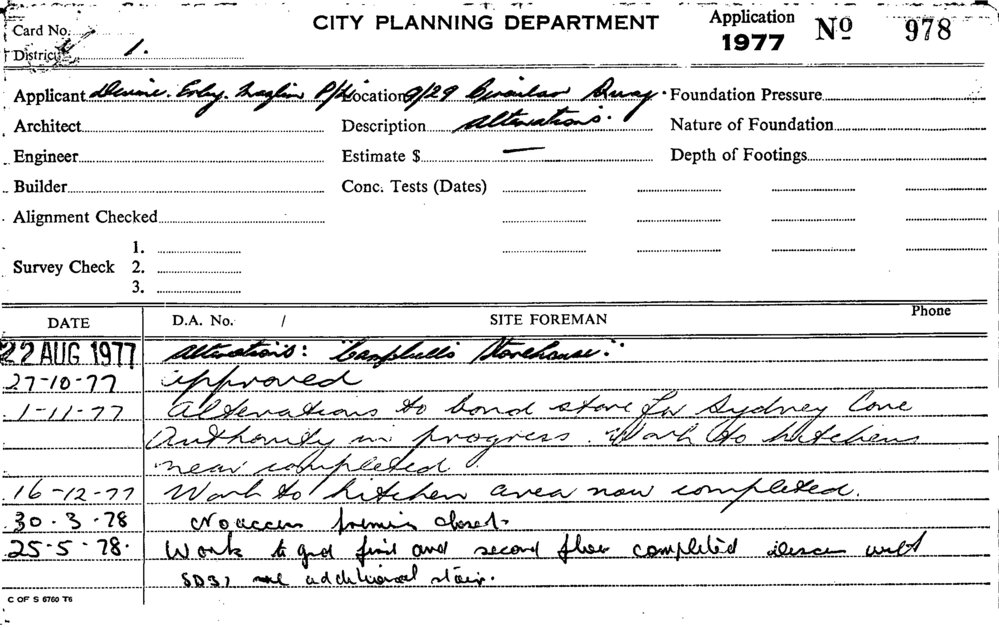 CITY PLANNING DEPARTMENT
Card No.
District 1.
Application 1977 No 978
Applicant Devine. Erby. Mazlin P/L Location 9/29 Circular Quay. Foundation Pressure
Architect Description Alterations. Nature of Foundation
Engineer Estimate $ — Depth of Footings
Builder Conc. Tests (Dates)
Alignment Checked
1.
Survey Check 2.
3.
DATE D.A. No. / SITE FOREMAN Phone
22 AUG 1977 Alterations: "Campbell's Storehouse."
27-10-77 approved
1-11-77 Alterations to bond store for Sydney Cove
Authority in progress. Work to kitchens
near completed.
16-12-77 Work to kitchen area now completed.
30.3.78 No access premis closed.
25-5-78. Work to grd first and second floor completed with
additional stair.
C OF S 6760 T6